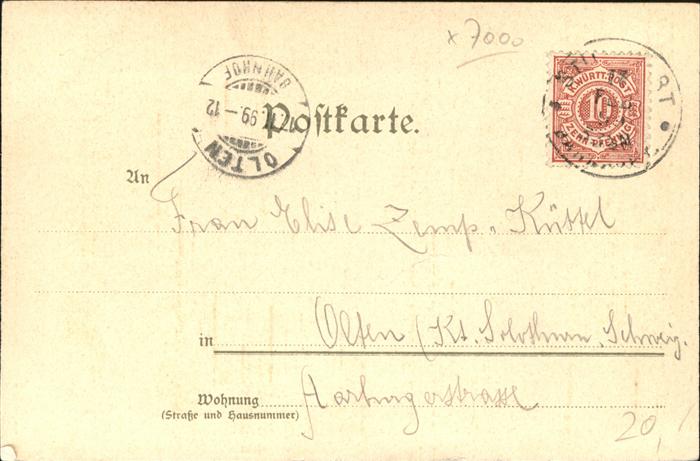 x 7000
K.WÜRTT.POST
10
ZEHN PFENNIG
BAHNHOF
99 — 12
OLTEN
Postkarte.
An
Frau Elise Zemp-Küttel
in Olten (Kt. Solothurn, Schweiz.
Wohnung
(Straße und Hausnummer)
Aarburgerstrasse
20,